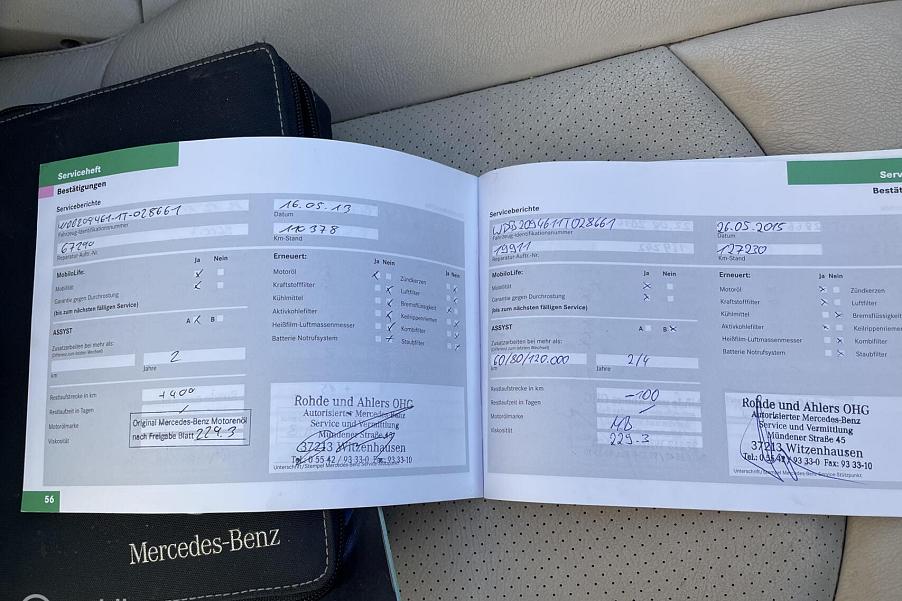 Serviceheft
Bestätigungen
Serviceberichte
WDB209461-1T-028661
Fahrzeug-Identifikationsnummer
67290
Reparatur-Auftr.-Nr.
16.05.13
Datum
110378
Km-Stand
MobiloLife:
Ja Nein
Mobilität
Garantie gegen Durchrostung
(bis zum nächsten fälligen Service)
ASSYST
A B
Zusatzarbeiten bei mehr als:
(Differenz zum letzten Wechsel)
km
2
Jahre
Erneuert:
Ja Nein
Motoröl
Kraftstofffilter
Kühlmittel
Aktivkohlefilter
Heißfilm-Luftmassenmesser
Batterie Notrufsystem
Zündkerzen
Luftfilter
Bremsflüssigkeit
Keilrippenriemen
Kombifilter
Staubfilter
Restlaufstrecke in km
+400
Restlaufzeit in Tagen
Motorölmarke
Viskosität
Original Mercedes-Benz Motorenöl
nach Freigabe Blatt 229.3
Rohde und Ahlers OHG
Autorisierter Mercedes-Benz
Service und Vermittlung
Mündener Straße 45
37213 Witzenhausen
Tel.: 0 55 42 / 93 33-0 Fax: 93 33-10
Unterschrift/Stempel Mercedes-Benz Service-Stützpunkt
56
Serviceberichte
WDB2094611T028661
Fahrzeug-Identifikationsnummer
19911
Reparatur-Auftr.-Nr.
26.05.2015
Datum
127230
Km-Stand
MobiloLife:
Ja Nein
Mobilität
Garantie gegen Durchrostung
(bis zum nächsten fälligen Service)
ASSYST
A B
Zusatzarbeiten bei mehr als:
(Differenz zum letzten Wechsel)
60/80/120.000
km
2/4
Jahre
Erneuert:
Ja Nein
Motoröl
Kraftstofffilter
Kühlmittel
Aktivkohlefilter
Heißfilm-Luftmassenmesser
Batterie Notrufsystem
Zündkerzen
Luftfilter
Bremsflüssigkeit
Keilrippenriemen
Kombifilter
Staubfilter
Restlaufstrecke in km
-100
Restlaufzeit in Tagen
Motorölmarke
MB
Viskosität
229.3
Rohde und Ahlers OHG
Autorisierter Mercedes-Benz
Service und Vermittlung
Mündener Straße 45
37213 Witzenhausen
Tel.: 0 55 42 / 93 33-0 Fax: 93 33-10
Unterschrift/Stempel Mercedes-Benz Service-Stützpunkt
Mercedes-Benz